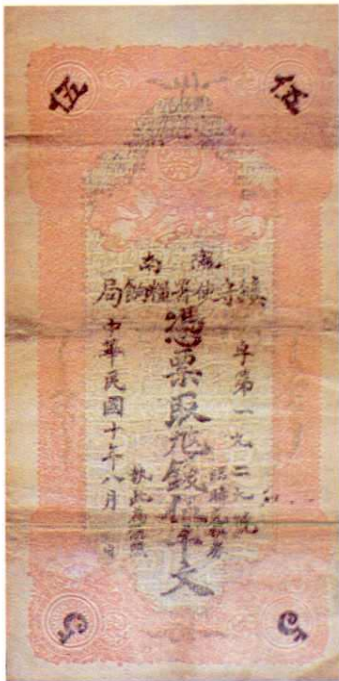 伍
伍
湘南
鎮守使署糧餉局
字第一九二九號
憑票取兌錢伍千文
執此為照
中華民國十年八月 日
5
5